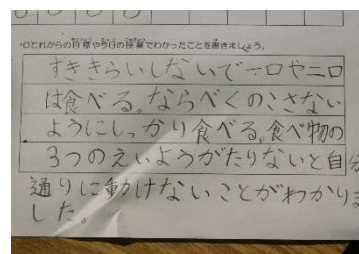 ○これからの目標や今日の授業でわかったことを書きましょう。
すききらいしないで一口や二口
は食べる。ならべくのこさない
ようにしっかり食べる。食べ物の
3つのえいようがたりないと自分
通りに動けないことがわかりま
した。